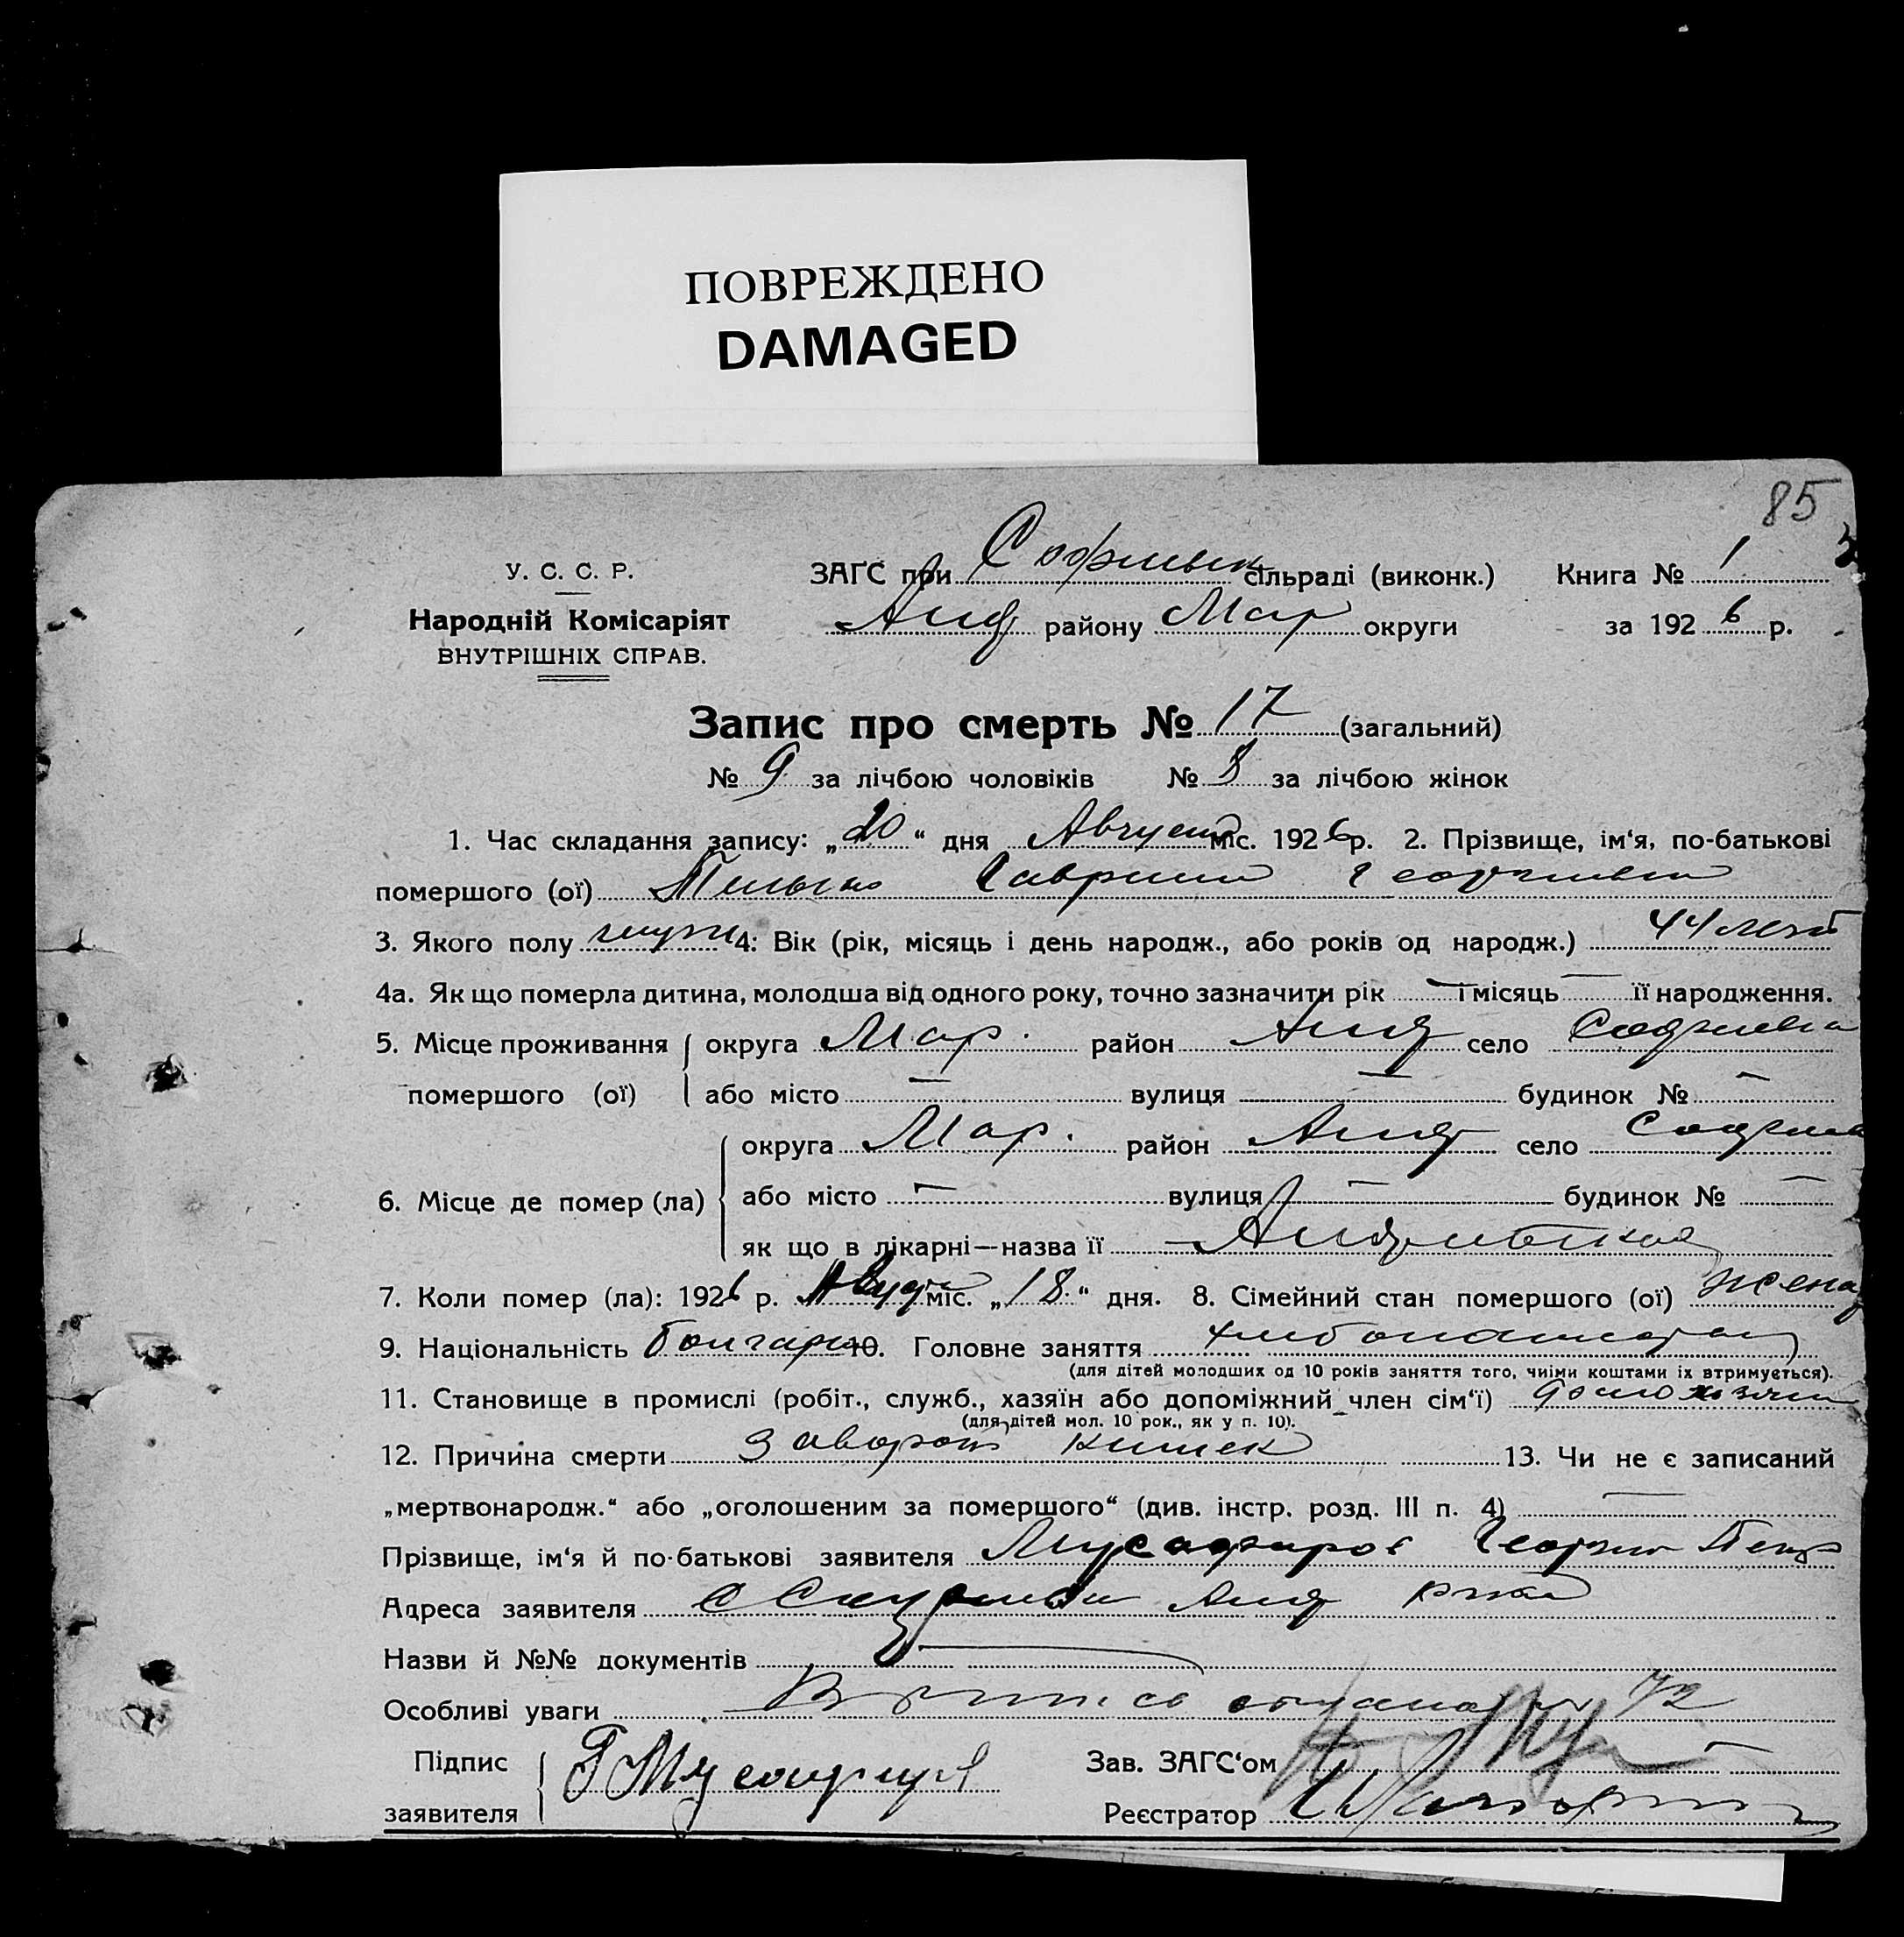 ПОВРЕЖДЕНО
DAMAGED
85
У. С. С. Р.
Народній Комісаріят
ВНУТРІШНІХ СПРАВ.
ЗАГС при Софиевск сільраді (виконк.) Книга № 1
Анд району Мар округи за 1926 р.
Запис про смерть № 17 (загальний)
№ 9 за лічбою чоловіків № 8 за лічбою жінок
1. Час складання запису: „20“ дня Август міс. 1926 р. 2. Прізвище, ім‘я, по-батькові
помершого (ої) Гаврил Георгиевич
3. Якого полу муж 4. Вік (рік, місяць і день народж., або років од народж.) 44 лет
4а. Як що померла дитина, молодша від одного року, точно зазначити рік — і місяць — її народження.
5. Місце проживання округа Мар. район Анд село Софиевка
помершого (ої) або місто — вулиця — будинок № —
округа Мар. район Анд село Софиевк
6. Місце де помер (ла) або місто — вулиця — будинок № —
як що в лікарні—назва її Андреевская
7. Коли помер (ла): 1926 р. Август міс. „18.“ дня. 8. Сімейний стан помершого (ої) женат
9. Національність болгарин 10. Головне заняття хлебопашество
(для дітей молодших од 10 років заняття того, чиїми коштами їх втримується).
11. Становище в промислі (робіт., служб., хазяїн або допоміжний член сім‘ї) домохозяин
(для дітей мол. 10 рок., як у п. 10).
12. Причина смерти Заворот кишек 13. Чи не є записаний
„мертвонародж.“ або „оголошеним за помершого“ (див. інстр. розд. III п. 4) —
Прізвище, ім‘я й по-батькові заявителя Мусафиров Георгий Петр
Адреса заявителя с Софиевки Анд р-на
Назви й №№ документів —
Особливі уваги
Підпис Г Мусафиров Зав. ЗАГС‘ом
заявителя Реєстратор